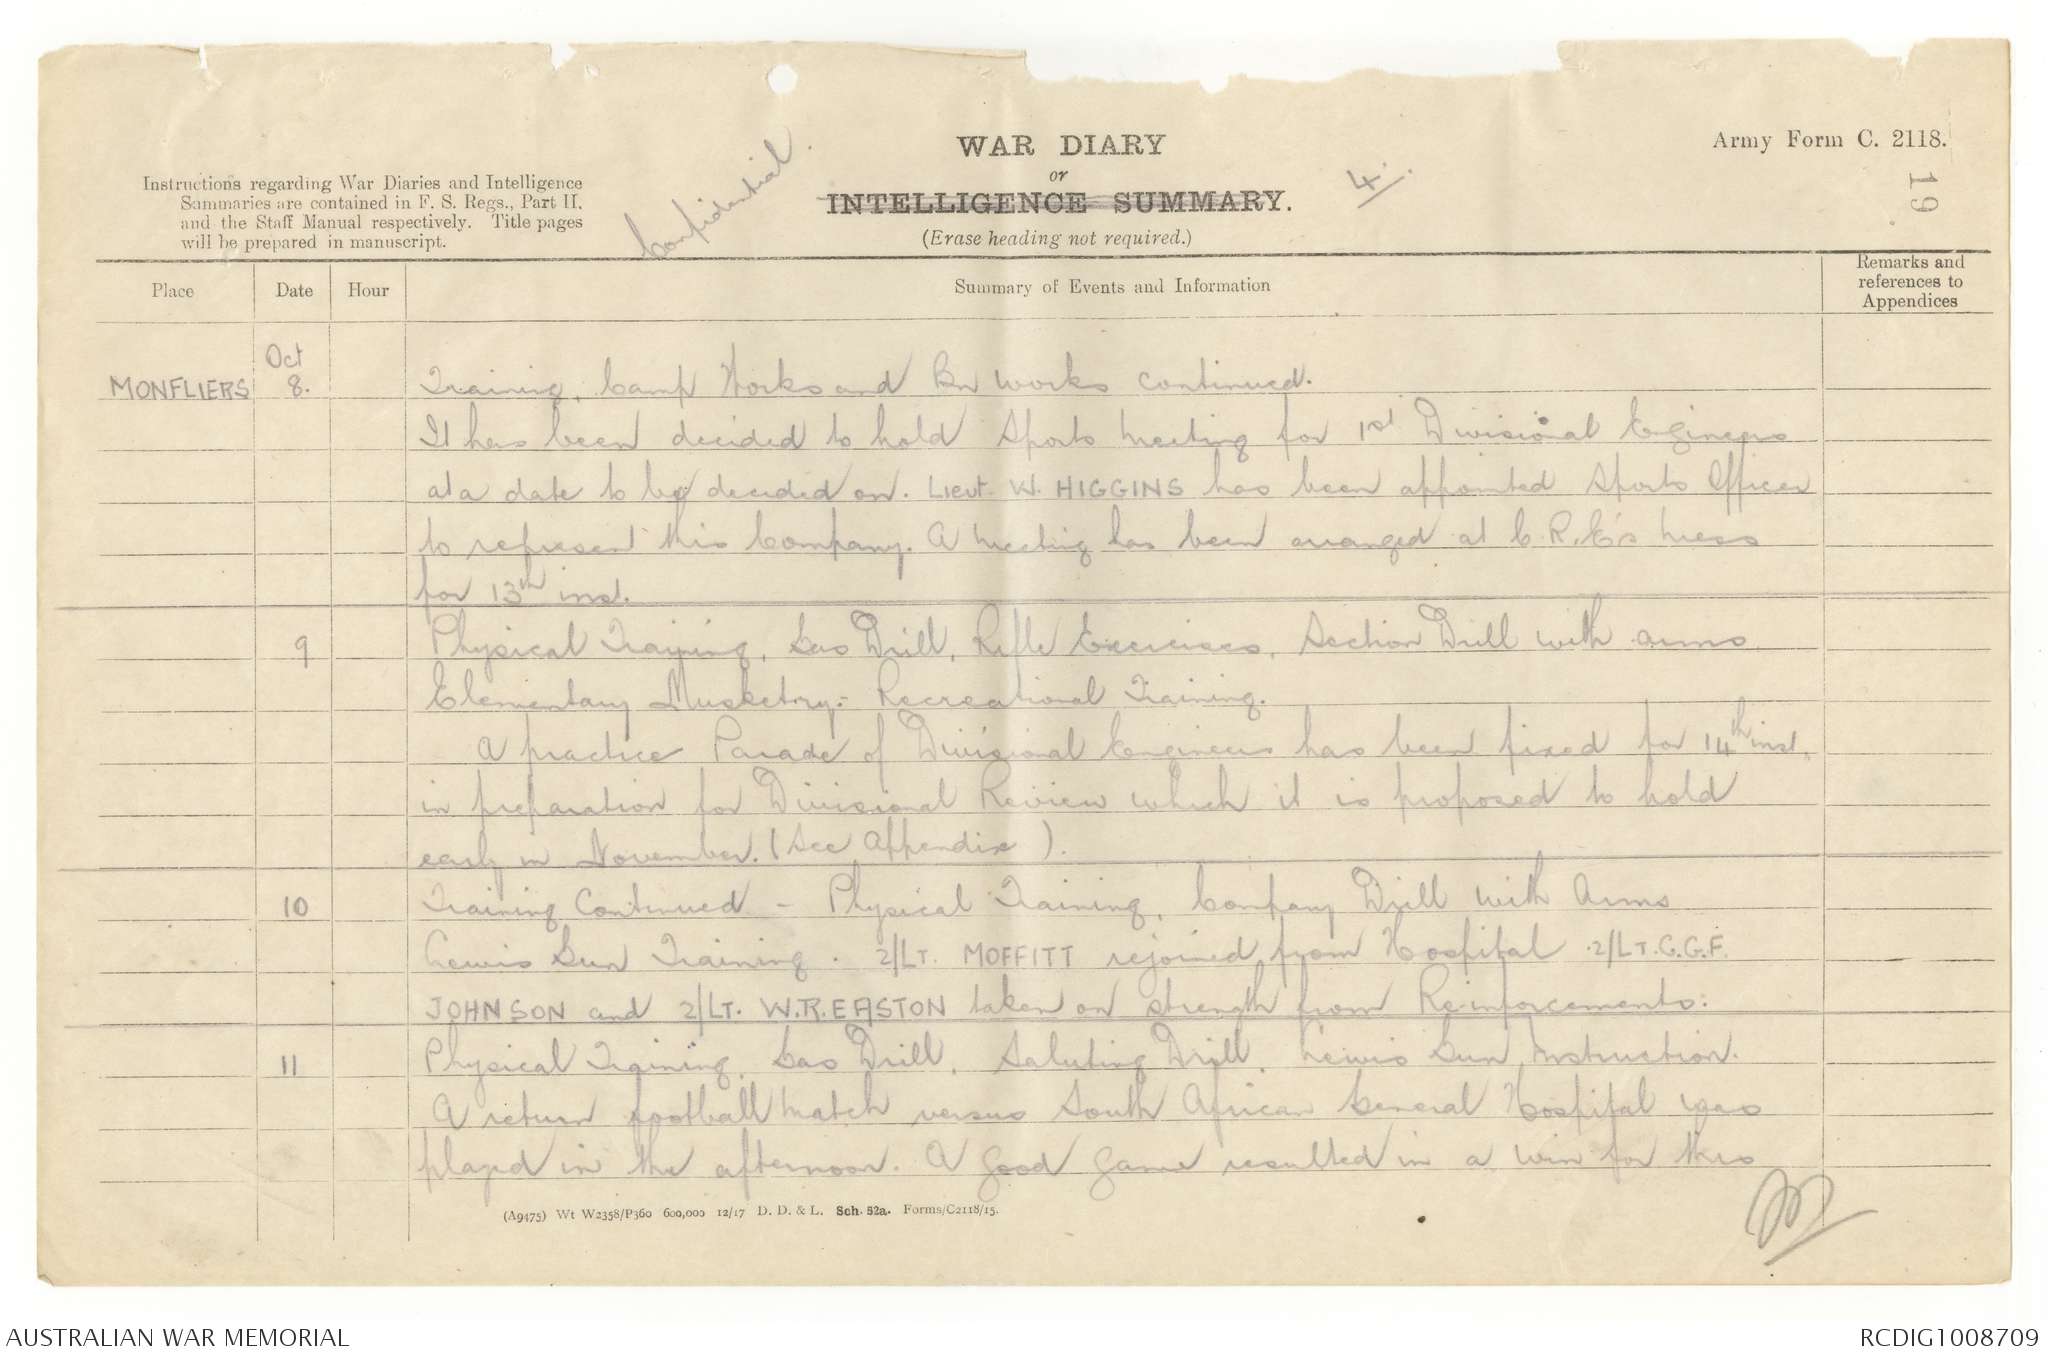 Confidential.
WAR DIARY
or
INTELLIGENCE SUMMARY.
(Erase heading not required.)
4/.
Army Form C. 2118.
19
Instructions regarding War Diaries and Intelligence
Summaries are contained in F. S. Regs., Part II.
and the Staff Manual respectively. Title pages
will be prepared in manuscript.
Place Date Hour Summary of Events and Information Remarks and
references to
Appendices
Oct
MONFLIERS 8. Training, Camp Works and Bn works continued.
It has been decided to hold Sports Meeting for 1st Divisional Engineers
at a date to be decided on. Lieut. W. HIGGINS has been appointed Sports Officer
to represent this Company. A meeting has been arranged at C.R.E's Mess
for 13th inst.
9 Physical Training, Gas Drill, Rifle Exercises, Section Drill with arms
Elementary Musketry:- Recreational Training.
A practice Parade of Divisional Engineers has been fixed for 14th inst.
in preparation for Divisional Review which it is proposed to hold
early in November. (See Appendix ).
10 Training Continued - Physical Training, Company Drill with Arms
Lewis Gun Training. 2/LT. MOFFITT rejoined from Hospital. 2/LT. C.G.F.
JOHNSON and 2/LT. W.R. EASTON taken on strength from Reinforcements.
11 Physical Training, Gas Drill, Saluting Drill, Lewis Gun Instruction.
A return football match versus South African General Hospital was
played in the afternoon. A good game resulted in a win for this
(A9475) Wt W2358/P360 600,000 12/17 D. D. & L. Sch. 52a. Forms/C2118/15.
AUSTRALIAN WAR MEMORIAL
RCDIG1008709